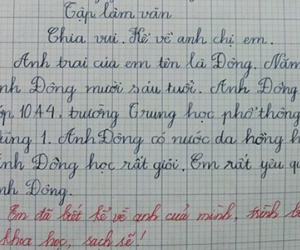 Tập làm văn
Chia vui. Kể về anh chị em.
Anh trai của em tên là Đông. Năm
Đông mười sáu tuổi. Anh Đông
10A4, trường Trung học phổ thông
1. Anh Đông có nước da hồng
Đông học rất giỏi. Em rất yêu
Đông.
Em đã biết kể về anh của mình, trình
khoa học, sạch sẽ!